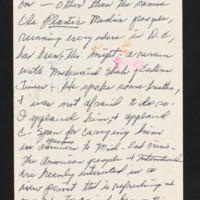 on — other than the same
Ole Plastic Media people,
running everywhere in D.C.,
has been, this might a person
with
Times + He spoke some truths,
& was not afraid to do so.
I applaud him, & applaud
C-Span for carrying him
in to Mid-East crisis.
The American people &
are keenly interested in a
new point that is refreshing &